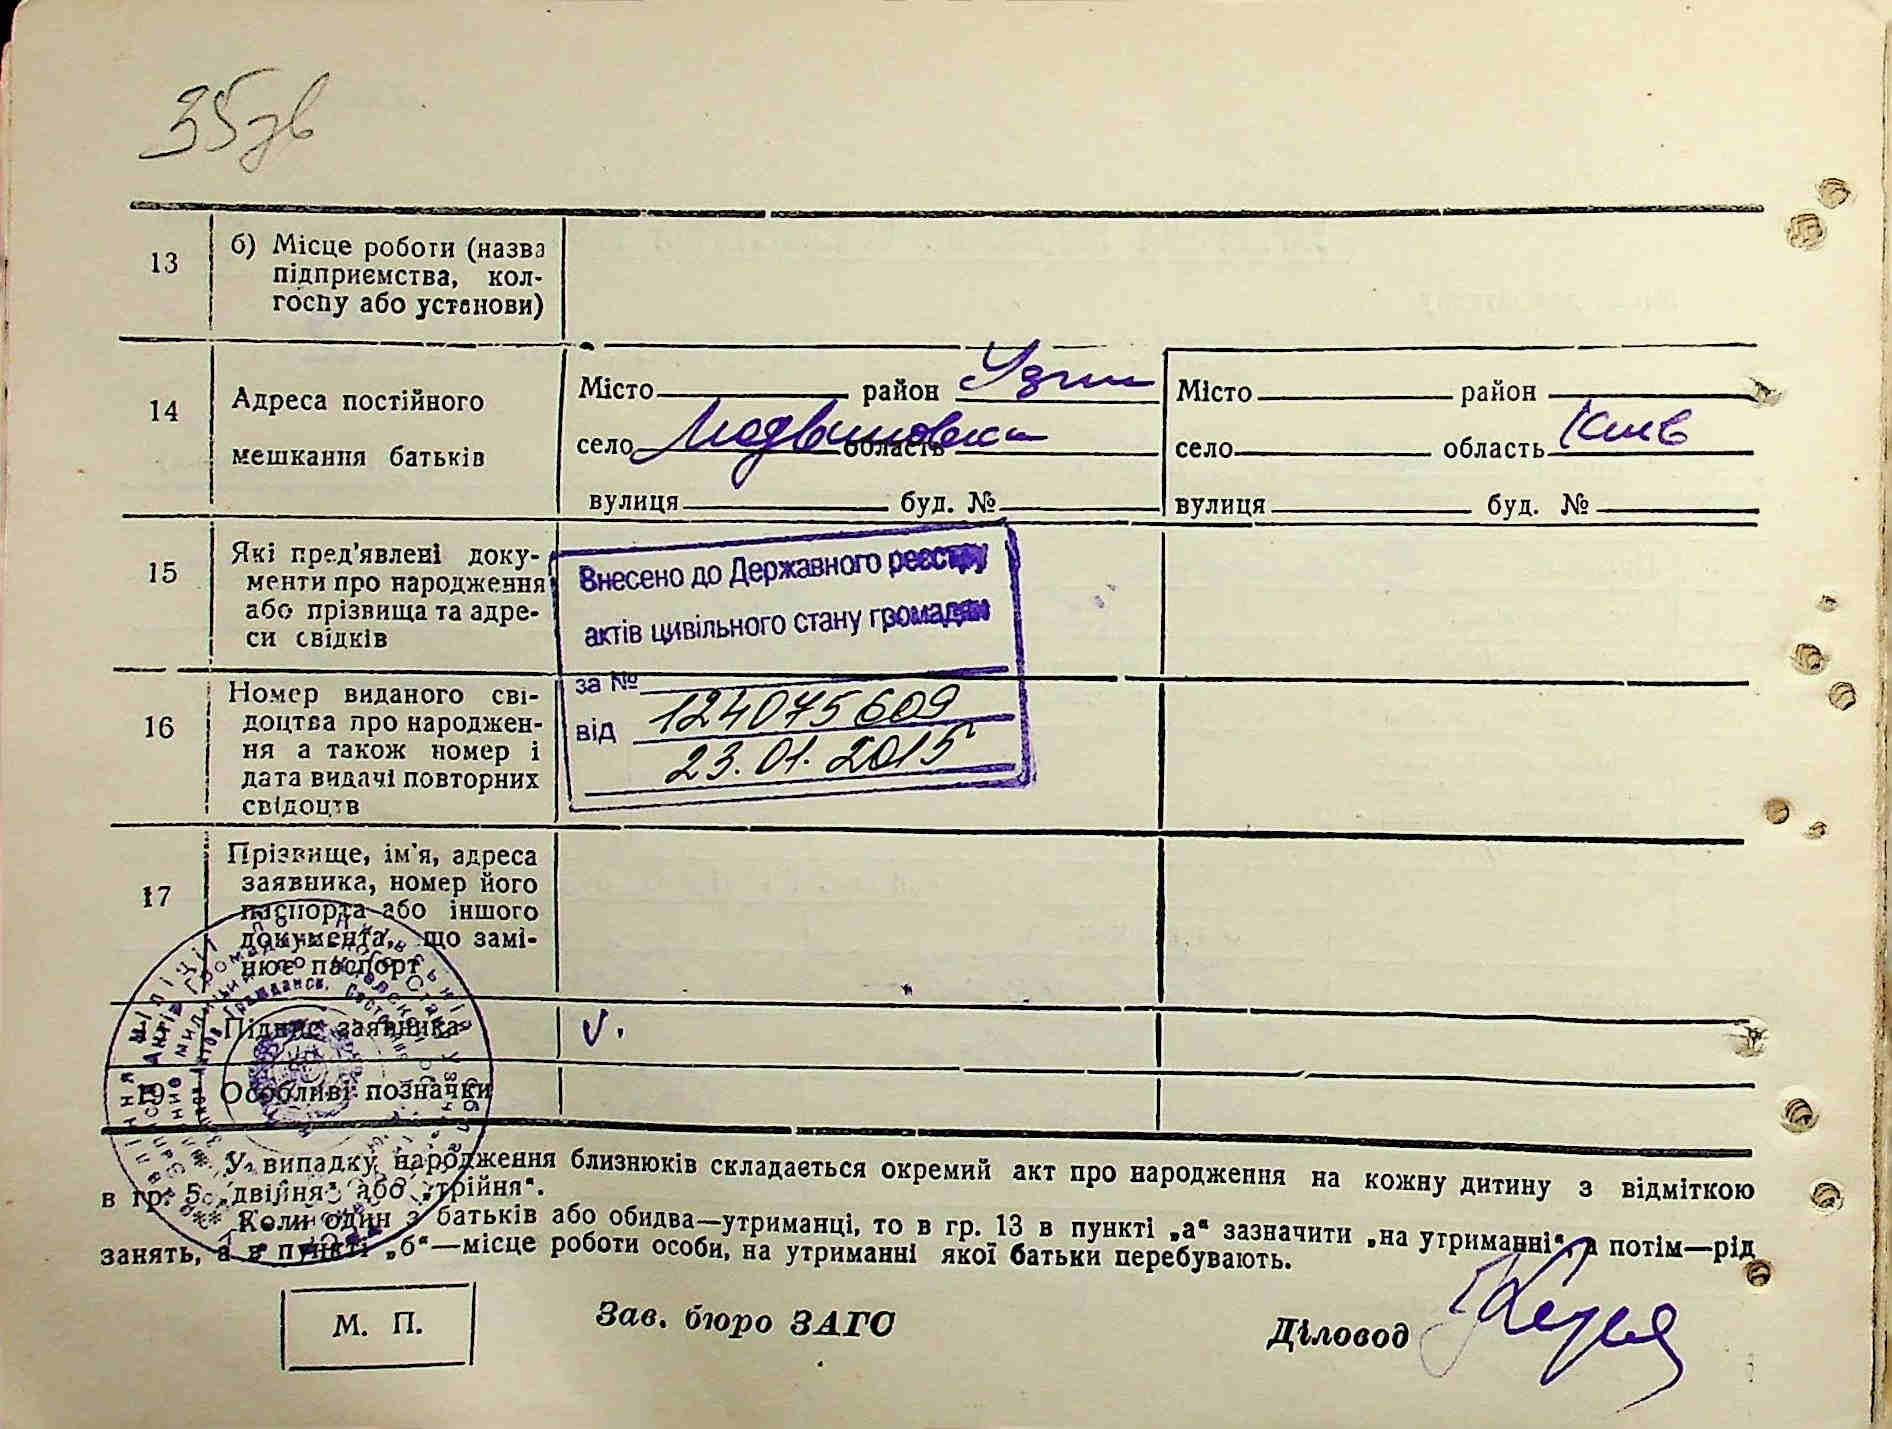 35 зв
13
б) Місце роботи (назва
підприємства, кол-
госпу або установи)
14
Адреса постійного
мешкання батьків
Місто район Узин
село область
вулиця буд. №
Місто район
село область Київ
вулиця буд. №
15
Які пред'явлені доку-
менти про народження
або прізвища та адре-
си свідків
Внесено до Державного реєстру
актів цивільного стану громадян
за №
від 124075609
23.01.2015
16
Номер виданого сві-
доцтва про народжен-
ня а також номер і
дата видачі повторних
свідоцтв
17
Прізвище, ім'я, адреса
заявника, номер його
паспорта або іншого
документа, що замі-
нює паспорт
Підпис заявника
V.
19
Особливі позначки
У випадку народження близнюків складається окремий акт про народження на кожну дитину з відміткою
в гр. 5 „двійня“ або „трійня“.
Коли один з батьків або обидва—утриманці, то в гр. 13 в пункті „а“ зазначити „на утриманні“, а потім—рід
занять, а в пункті „б“—місце роботи особи, на утриманні якої батьки перебувають.
М. П.
Зав. бюро ЗАГС
Діловод